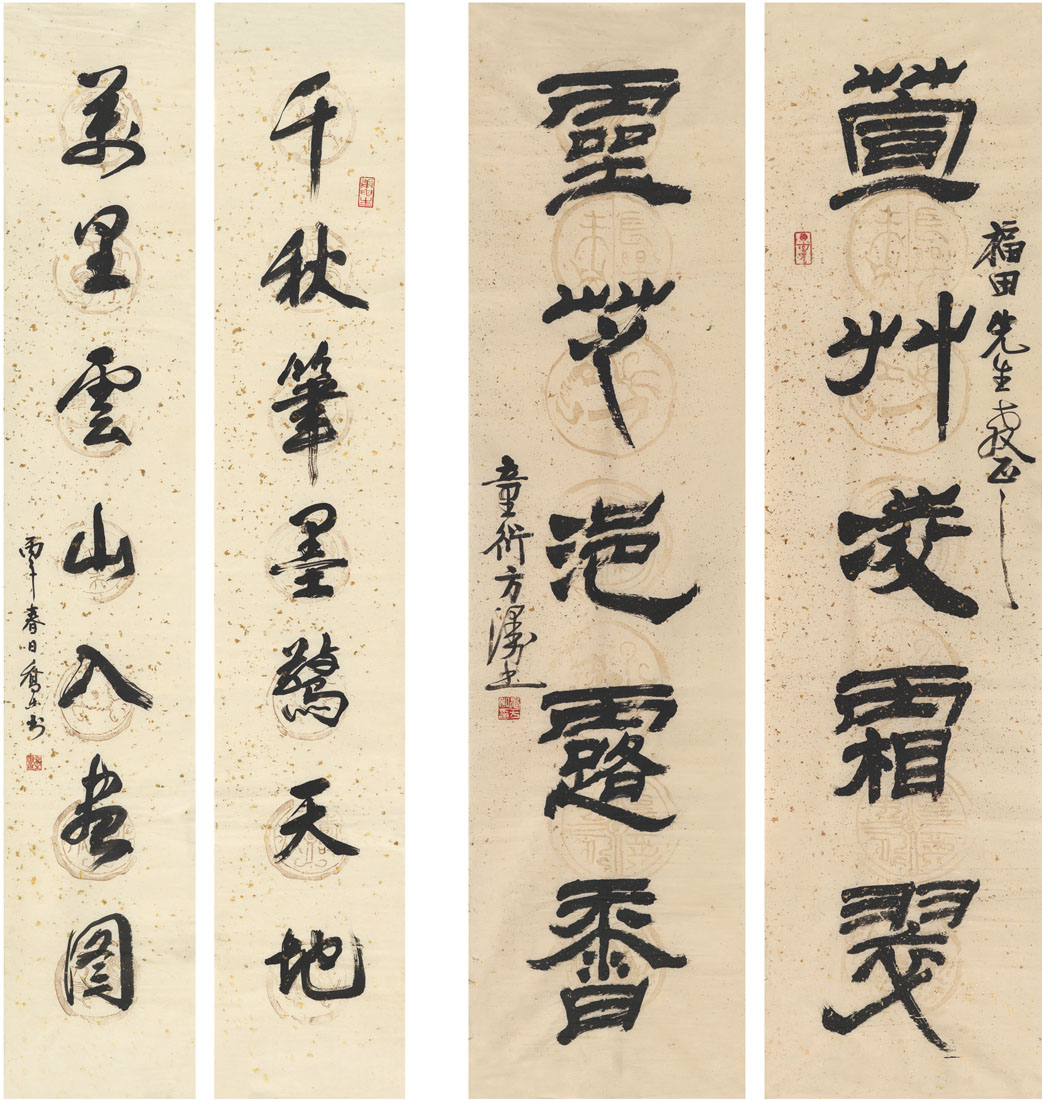 萱艸凌霜翠
福田先生教正
靈芝浥露香
童衍方書
千秋筆墨驚天地
萬里雲山入畫图
丙午春日